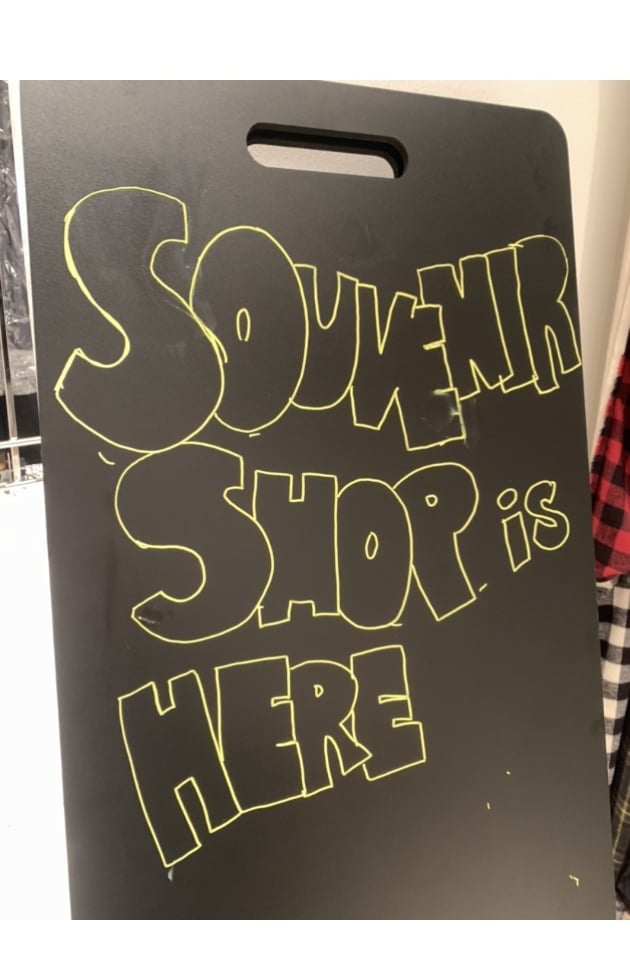 SOUVENIR
SHOP is
HERE